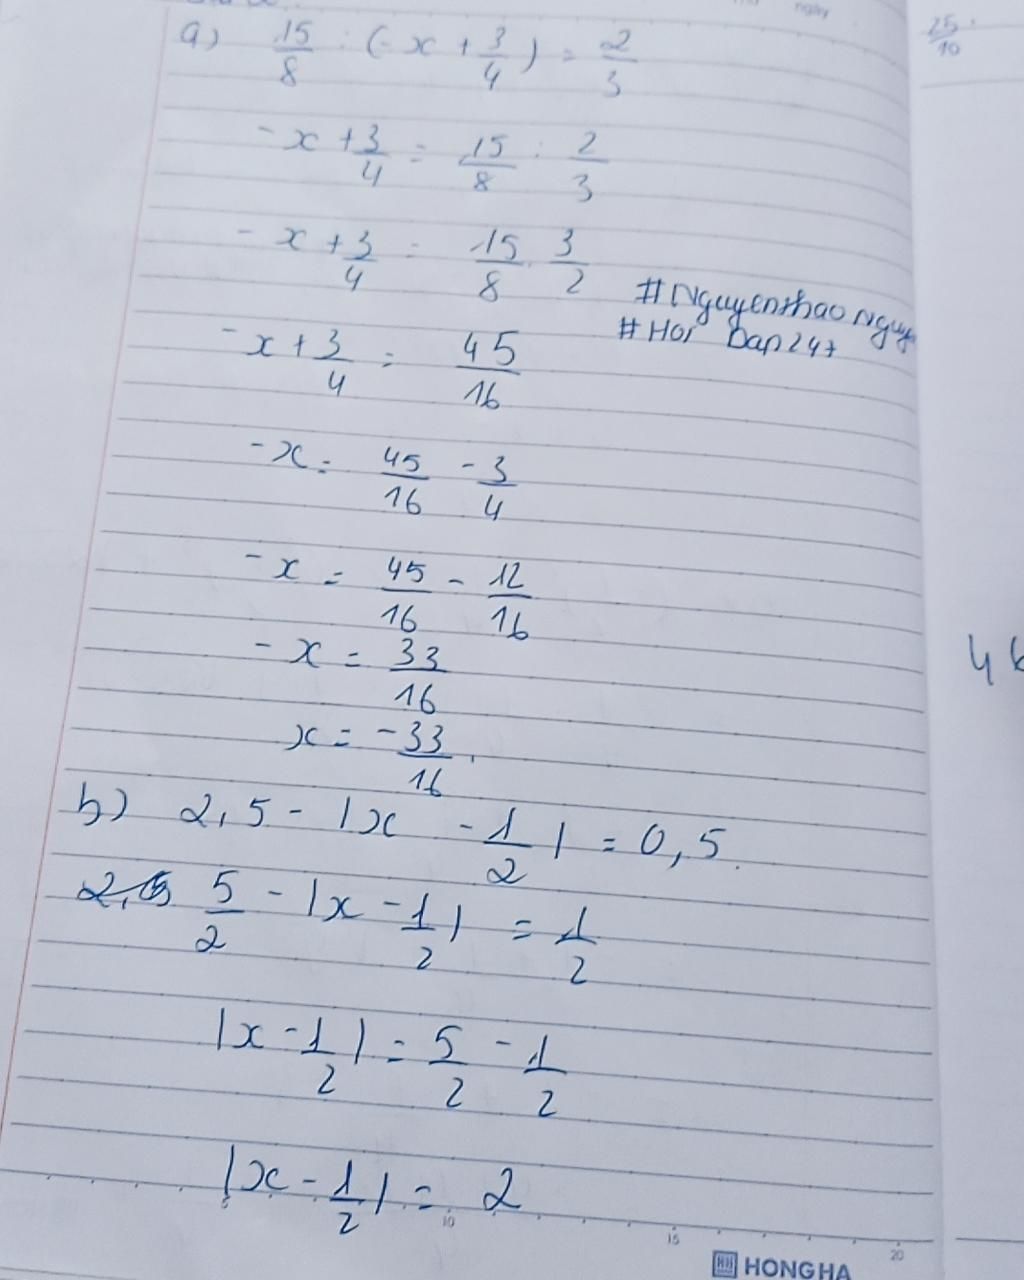 a) 15/8 : (-x + 3/4) = 2/3
-x + 3/4 = 15/8 : 2/3
-x + 3/4 = 15/8 . 3/2
#NguyenthaoNguy
#Hoi Dap247
-x + 3/4 = 45/16
-x = 45/16 - 3/4
-x = 45/16 - 12/16
-x = 33/16
x = -33/16.
b) 2,5 - |x - 1/2| = 0,5.
5/2 - |x - 1/2| = 1/2
|x - 1/2| = 5/2 - 1/2
|x - 1/2| = 2
5 10 15 20
HONGHA
ngày
25/10